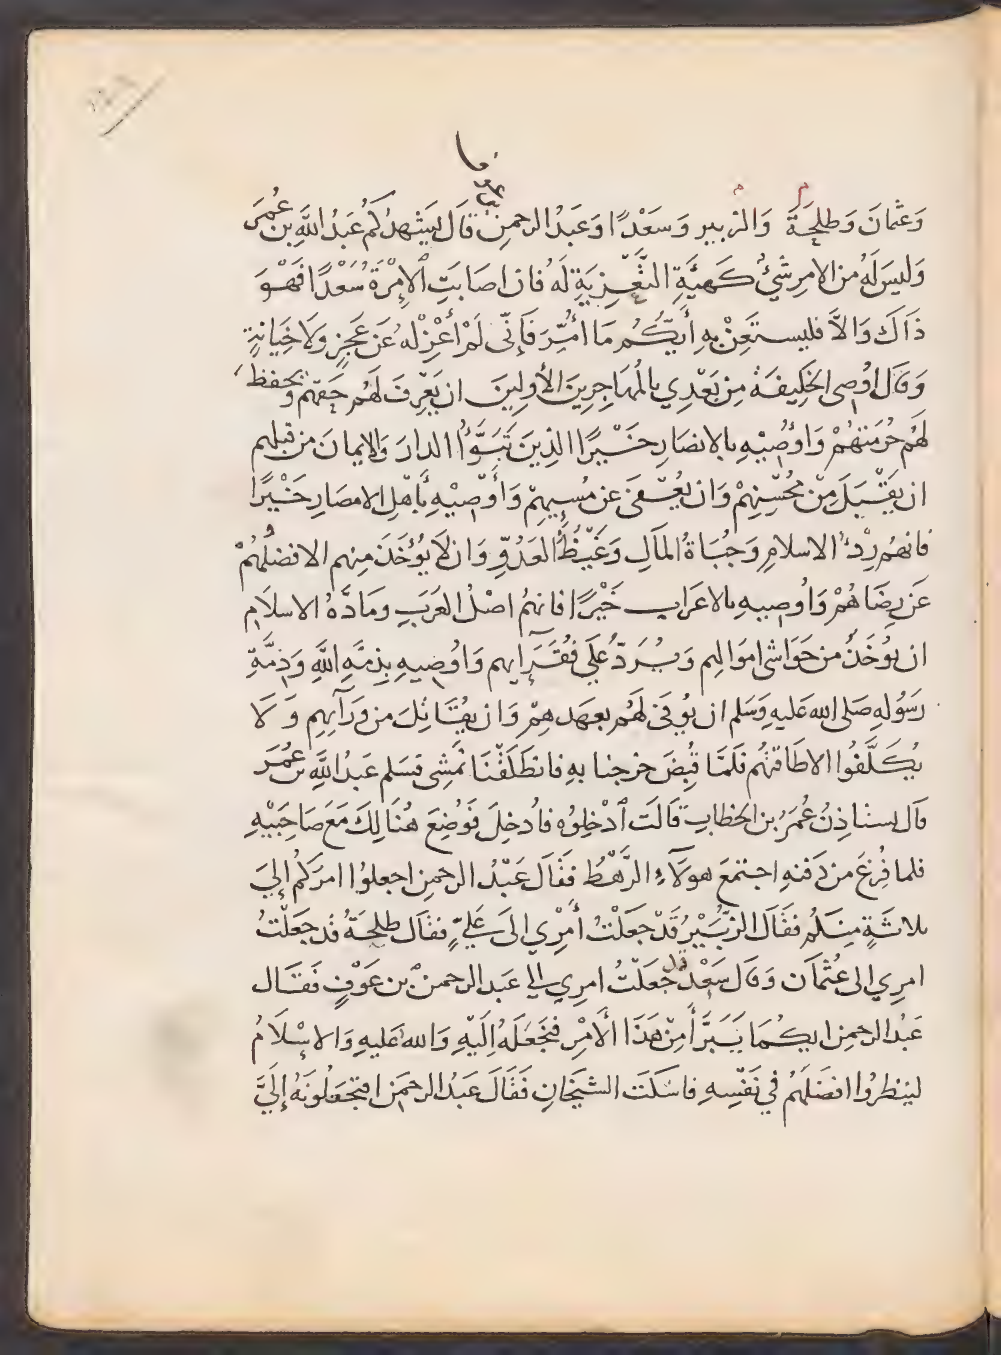 وَعثمانَ وَطلحَةَ وَالزبير وَسَعْدًا وَعَبدُ الرحمنِ قالَ يَشْهدُ كم عَبدُ اللَّهِ بن عُمَرَ
وَليسَ لَهُ من الامرِ شَيْءٌ كَهيْئَةِ التَّعْزِيَةِ لَهُ فان اصَابَتِ الإمْرَةُ سَعْدًا فَهْوَ
ذَاكَ وَالاَّ فليستَعِنْ بِهِ أَيُّكُم مَا أمِّرَ فَإنّي لَمْ أعْزِلْهُ عَن عَجزٍ وَلَا خِيَانةٍ
وَقَال اوُصِى الخَلِيفَةَ مِن بَعْدِي بالمهَاجِرِينَ الأولينَ ان يَعْرِفَ لَهُم حَقهُم وَيحفظ
لَهُم حُرمَتهُمْ وَاوُصِيْهِ بالانصَارِ خَيْرًا الذِينَ تَبَوَّؤُا الدارَ وَالايمانَ من قبلهم
ان يَقْبَلَ مِنْ مُحْسِنِهِمْ وَان يُعْفىَ عن مُسِيهِمْ وَأُوْصِيْهِ بأَهْلِ الامصَارِ خَيْرًا
فانهُم رِدْءُ الاسلامِ وَجُبَاةُ المَالِ وَغَيْظُ العَدُوِّ وَان لَا يُؤْخَذَ مِنهم الا فضلُهُمْ
عَن رِضَاهُمْ وَاوُصِيهِ بالاعرَابِ خَيْرًا فانهُم اصْلُ العَرَبِ ومَادَّةُ الاسلاَمِ
ان يؤخَذَ من حَوَاشى اموَالِهم وَيُرَدّ عَلَى فُقَرَآيهم وَاوُصِيهِ بِذِمَّةِ اللَّهِ وَذِمَّةِ
رَسُولهِ صَلى الله عَليهِ وَسَلم ان يوُفىَ لَهُم بعَهدِهِمْ وَان يُقَاتِلَ من وَرَآيِهِم وَلَا
يُكَلَّفُوا الا طَاقتهُم فَلَمَّا قُبِضَ خَرجنا بهِ فانطَلَقْنَا نمشِى فَسَلم عَبدُ اللَّهِ بن عُمَرَ
قال يستاذِنُ عُمَرُ بن الخطابِ قَالَت أدْخِلوُهُ فاُدخِلَ فَوُضِعَ هُنَالِكَ مَعَ صَاحِبَيْهِ
فلما فُرِغَ من دَفنهِ اجتمَعَ هَولَآءِ الرَّهْطُ فَقَالَ عَبْدُ الرحمنِ اجعلوُا امرَكُم إلىَ
ثلاثةٍ مِنكم فقَالَ الزُّبَيْرُ قَدْ جَعَلْتُ أمْرِي الىَ عَلِيٍّ فقال طَلحَةُ قد جَعَلْتُ
امرِي الى عُثمانَ وَقال سَعْدٌ قد جَعَلْتُ امرِي الى عَبد الرحمنِ بن عَوْفٍ فَقَال
عَبدُ الرحمنِ ايكُمَا يَتَبَرَّأُ مِنْ هَذَا الأَمْرِ فنجَعَلَهُ اِلَيْهِ وَالله عَليهِ وَالاِسْلَامُ
لينظرُوا افضَلَهُم في نَفْسِهِ فاسْكَتَ الشيخَانِ فَقَالَ عَبدُ الرحمَنِ افتجعَلُونَهُ إلَيَّ